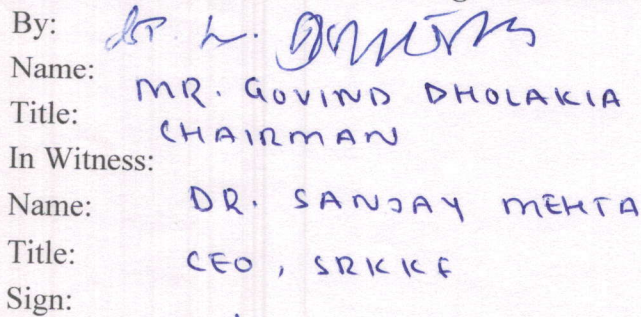 By:
Name: MR. GOVIND DHOLAKIA
Title: CHAIRMAN
In Witness:
Name: DR. SANJAY MEHTA
Title: CEO, SRKKF
Sign: